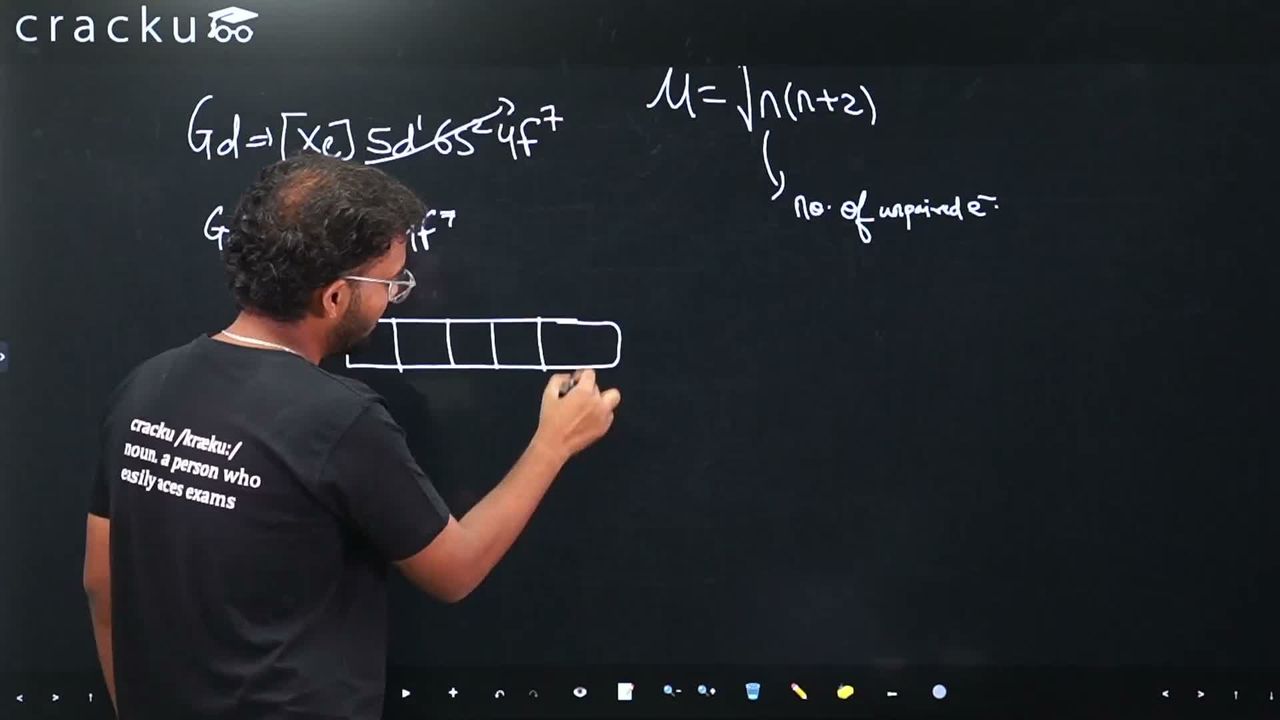 cracku
Gd ⇒ [Xe] 5d¹ 6s² 4f⁷
μ = √n(n+2)
no. of unpaired e⁻.
G f⁷
cracku /kræku:/
noun. a person who
easily aces exams